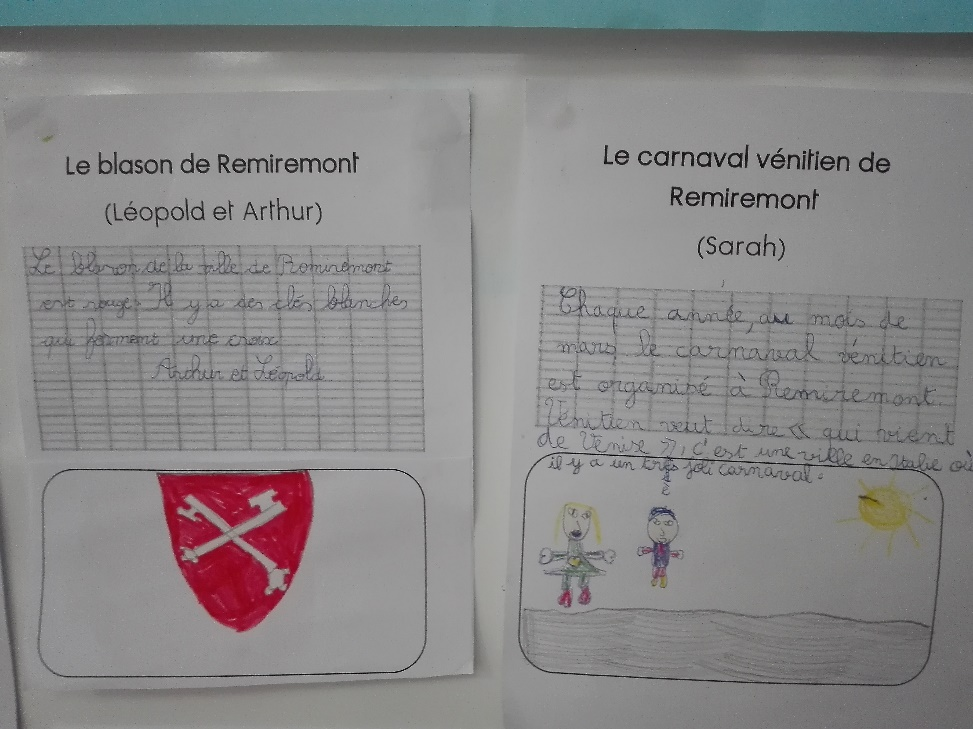 Le blason de Remiremont
(Léopold et Arthur)
Le blason de la ville de Remiremont
est rouge. Il y a des clés blanches
qui forment une croix
Arthur et Léopold
Le carnaval vénitien de
Remiremont
(Sarah)
Chaque année, au mois de
mars, le carnaval vénitien
est organisé à Remiremont.
Vénitien veut dire « qui vient
de Venise », c'est une ville en Italie où
il y a un très joli carnaval.